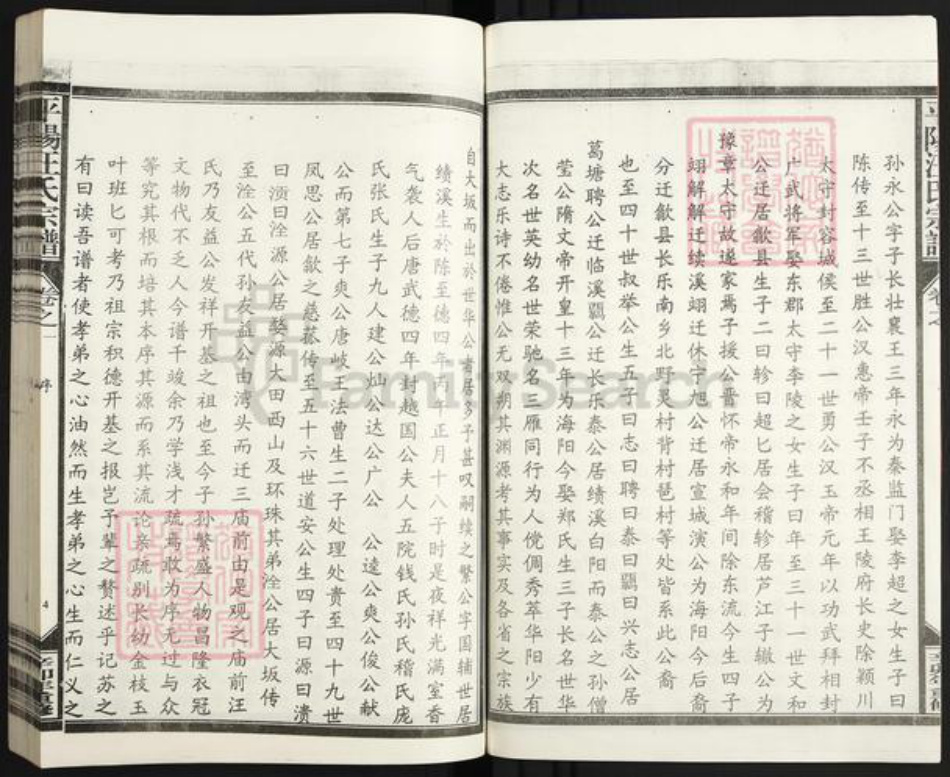 孙永公字子长壮襄王三年永为秦监门娶李超之女生子曰
陈传至十三世胜公汉惠帝壬子不丞相王陵府长史除颍川
太守封容城侯至二十一世勇公汉玉帝元年以功武拜相封
广武将军娶东郡太守李陵之女生子曰年至三十一世文和
公迁居歙县生子二曰轸曰超匕居会稽轸居芦江子辙公为
豫章太守故遂家焉子援公晋怀帝永和年间除东流今生四子
翊解解迁续溪翊迁休宁旭公迁居宣城演公为海阳今后裔
分迁歙县长乐南乡北野灵村背村琶村等处皆系此公裔
也至四十世叔举公生五子曰志曰聘曰泰曰羁曰兴志公居
葛塘聘公迁临溪羁公迁长乐泰公居绩溪白阳而泰公之孙僧
莹公隋文帝开皇十三年为海阳令娶郑氏生三子长名世华
次名世英幼名世荣驰名三雁同行为人傥倜秀萃华阳少有
大志乐诗不倦惟公无双朔其渊源考其事实及各省之宗族
自大坂而出於世华公者居多予甚叹嗣续之繁公字国辅世居
绩溪生於陈至德四年丙午正月十八子时是夜祥光满室香
气袭人后唐武德四年封越国公夫人五院钱氏孙氏稽氏庞
氏张氏生子九人建公灿公达公广公 公逵公爽公俊公献
公而第七子爽公唐岐王法曹生二子处理处贵至四十九世
凤思公居歙之慈菰传至五十六世道安公生四子曰源曰溃
曰湏曰淦源公居婺源大田西山及环珠其弟淦公居大坂传
至淦公五代孙友益公由湾头而迁三庙前由是观之庙前汪
氏乃友益公发祥开基之祖也至今子孙繁盛人物昌隆衣冠
文物代不乏人今谱千竣余乃学浅才疏焉敢为序无过与众
等究其根而培其本序其源而系其流论亲疏别长幼金枝玉
叶班匕可考乃祖宗积德开基之报岂予辈之赘述乎记苏之
有曰读吾谱者使孝弟之心油然而生孝弟之心生而仁义之
平陽汪氏宗譜
卷之一
序
4